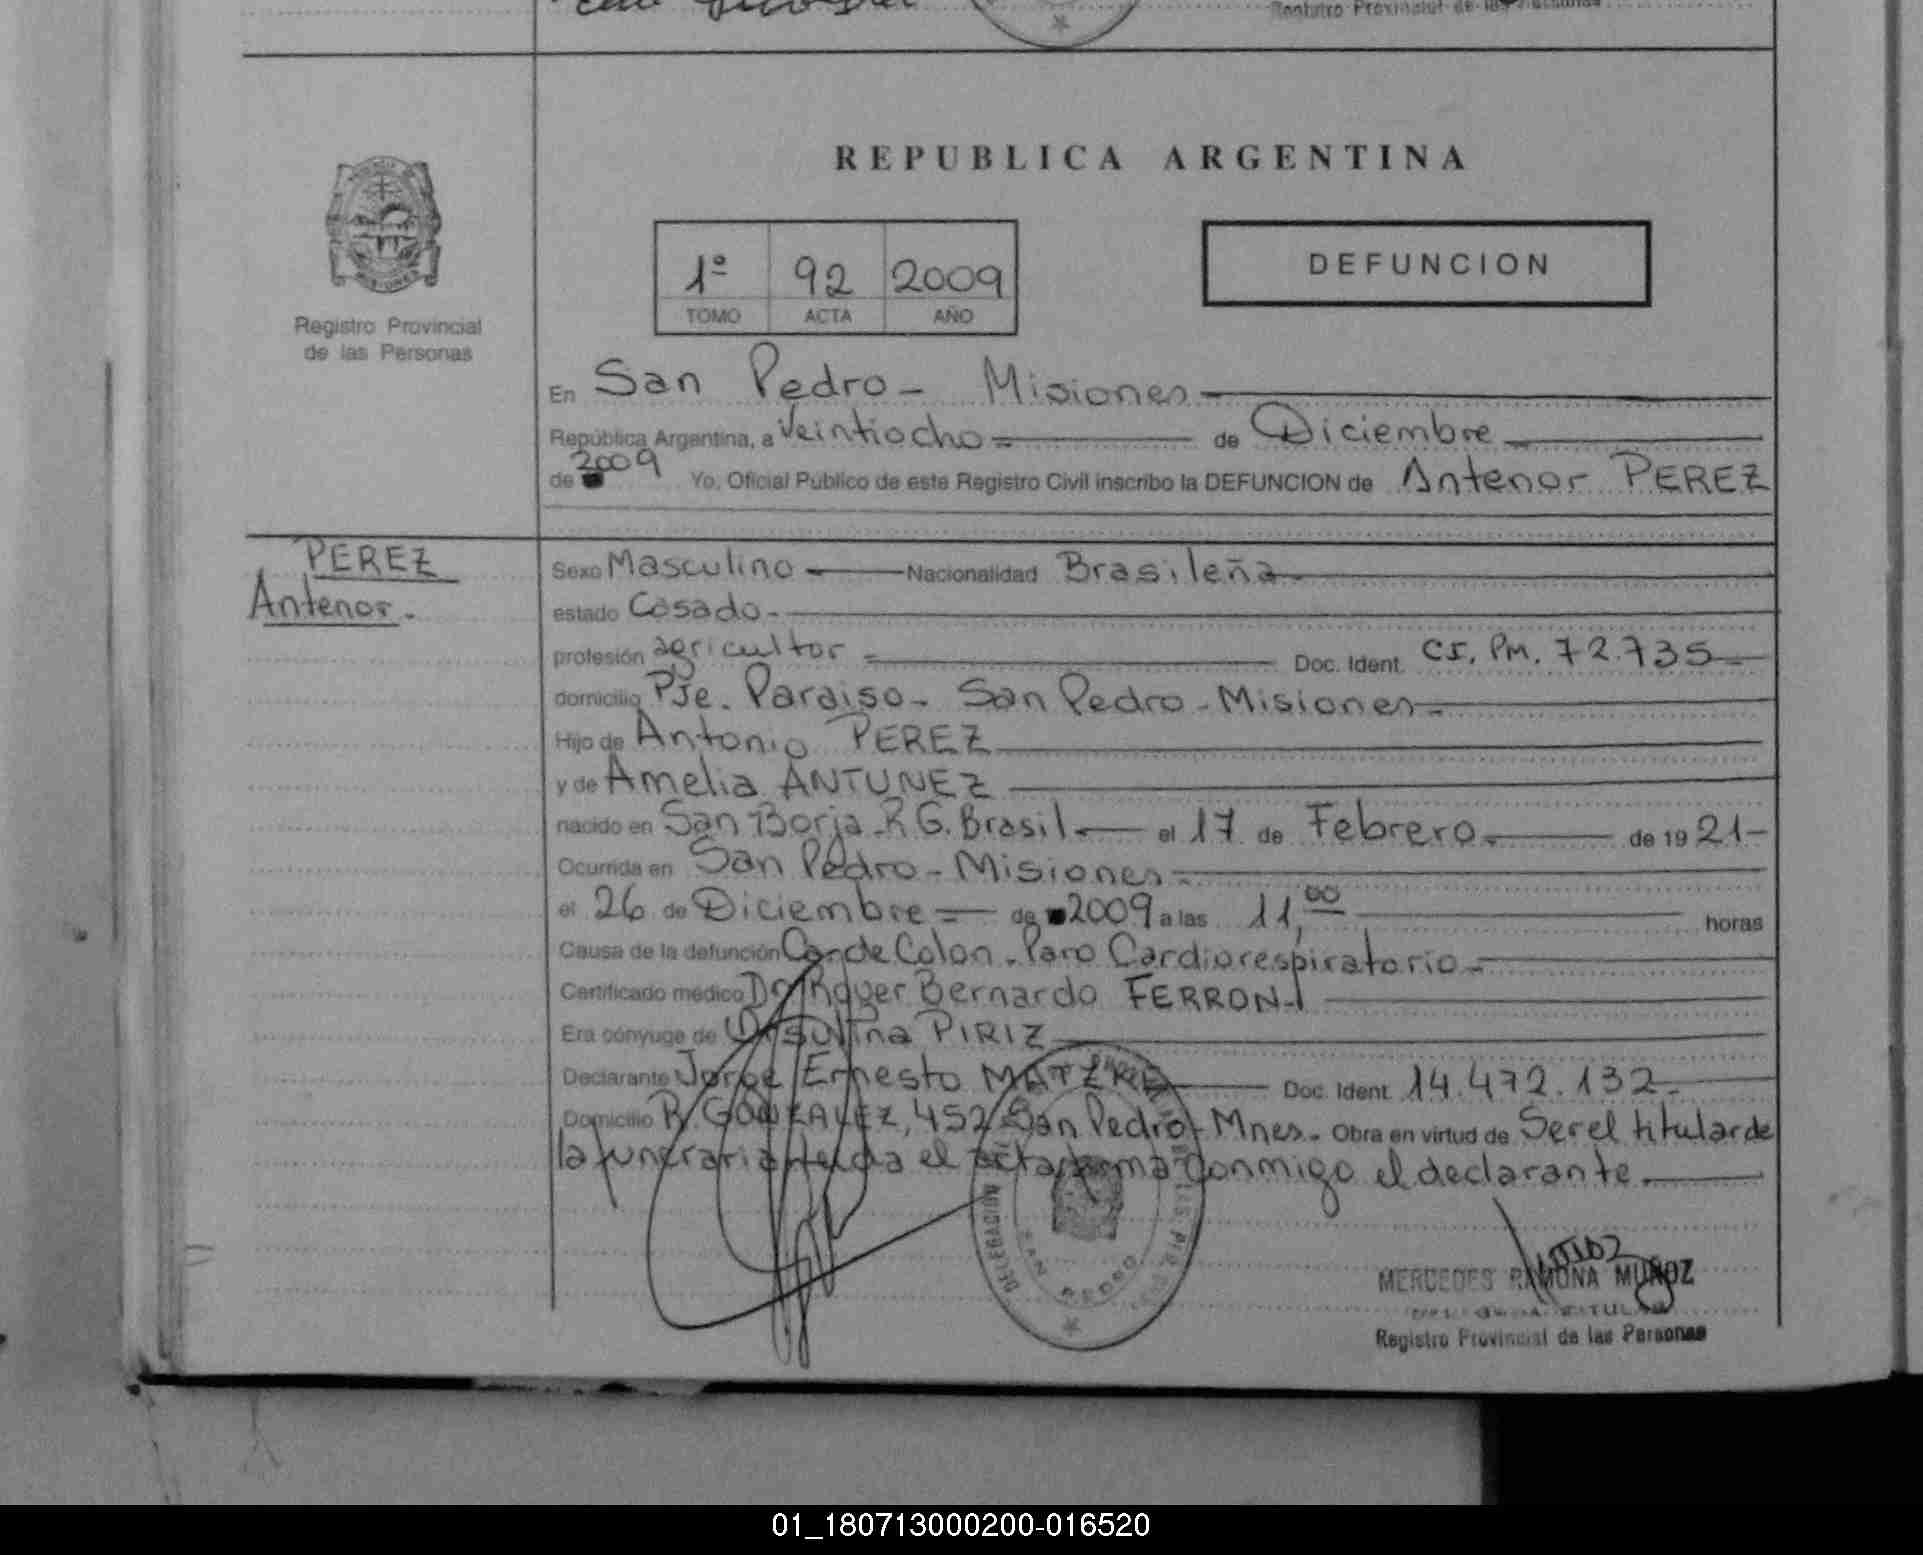 Registro Provincial de las Personas
REPUBLICA ARGENTINA
1º 92 2009
TOMO ACTA AÑO
DEFUNCION
Registro Provincial
de las Personas
En San Pedro - Misiones
República Argentina, a Veintiocho = de Diciembre
de 2009 Yo, Oficial Público de este Registro Civil inscribo la DEFUNCION de Antenor PEREZ
PEREZ
Antenor.
Sexo Masculino Nacionalidad Brasileña
estado Casado.
profesión agricultor = Doc. Ident. CI. Pm. 72.735
domicilio Pje. Paraiso - San Pedro - Misiones
Hijo de Antonio PEREZ
y de Amelia ANTUNEZ
nacido en San Borja - R.G. Brasil el 17 de Febrero de 1921-
Ocurrida en San Pedro - Misiones
el 26 de Diciembre = de 2009 a las 11,00 horas
Causa de la defunción Ca de Colon - Paro Cardiorespiratorio
Certificado médico Dr. Roger Bernardo FERRONI
Era cónyuge de PIRIZ
Declarante Jorge Ernesto Doc. Ident. 14.472.132
Domicilio R. GONZALEZ, 452 San Pedro - Mnes. Obra en virtud de Ser el titular de
la funeraria leida el acta firma conmigo el declarante.
DELEGACION
SAN PEDRO
MERCEDES RAMONA MUÑOZ
Registro Provincial de las Personas
01_180713000200-016520